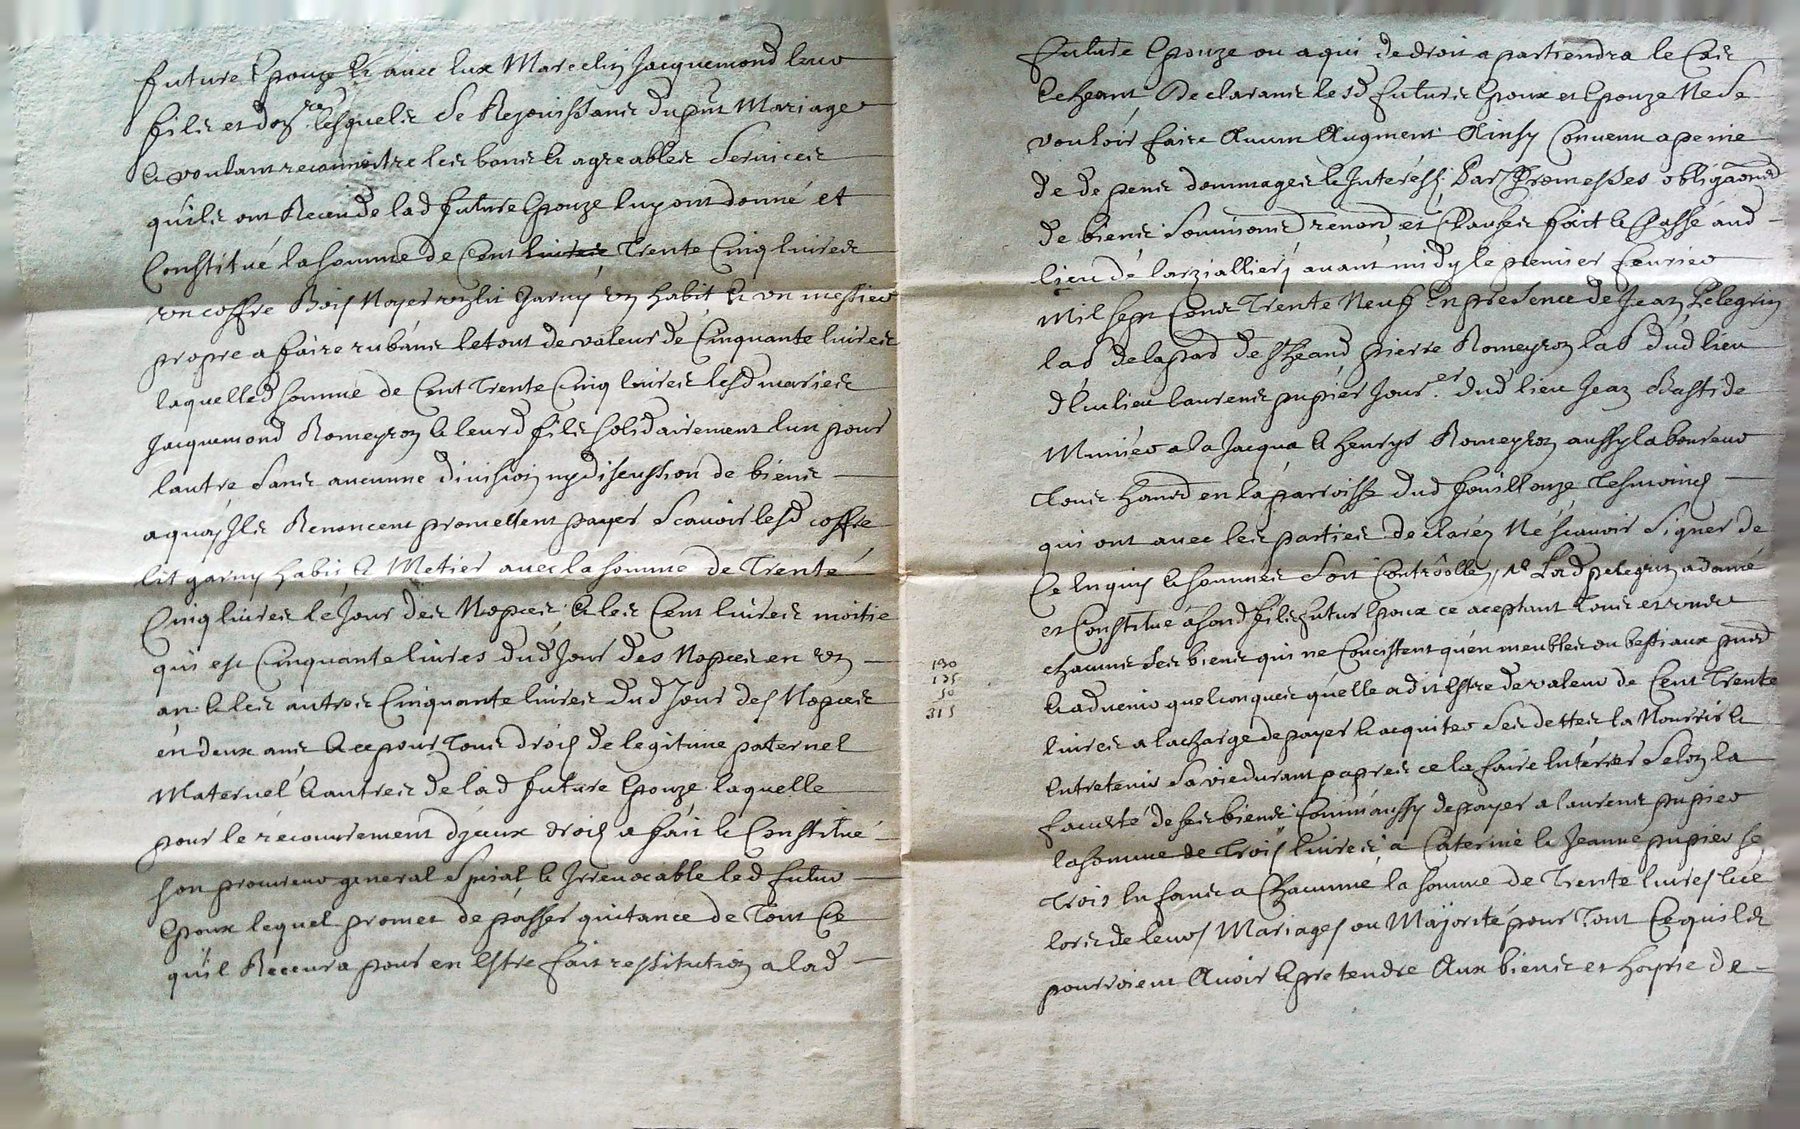 future Epouze & avec eux Marcelin Jacquemond leur
fils et lesquels se Rejouissans du pnt Mariage
& voulant reconnoitre les bons & agreables Services
quils ont Receu de lad future Epouze luy ont donné et
Constitué la somme de Cent livres Trente Cinq livres
un coffre Bois Noyer un lit Garny un habit & un messtier
propre a faire rubans letout de valeur de Cinquante livres
laquelled somme de Cent Trente Cinq livres lesd maries
Jacquemond Romeyron & leurd fils solidairement lun pour
lautre sans aucunne division ny discussion de biens
aquoy Ils Renoncent promettent payer Scavoir lesd coffre
lit garny habit & Metier avec la somme de Trente
Cinq livres le Jour des Nopces, & les Cent livres moitie
qui est Cinquante livres dud Jour des Nopces en un
an & les autres Cinquante livres dud Jour des Nopces
en deux ans & ce pour Tous drois de legitime paternel
Maternel & autres de lad future Epouze laquelle
pour le recouvrement diceux drois a fait & Constitué
son procureur general Special & Irrevocable led futur
Epoux lequel promet de passer quitance de Tout Ce
quil Recevra pour en Estre fait restitution a lad
future Epouze ou a qui de droit apartiendra le Cas
Echeant Declarans lesd futurs Epoux et Epouze Ne se
vouloir faire Aucun Augment Ainsy Convenu a peine
de de pens dommages & Interests Par Promesses obligaons
de biens Soumions renond et Clauses fait & Passé aud
lieu de larziallier, avant midy le premier fevrier
Mil sept Cens Trente Neuf En presence de Jean Pelegrin
lab de lapad de Pierre Romeyron lab dud lieu
laurens pupier Jour.er dud lieu Jean Bastide
Munier a la Jacqua & Henrys Romeyron aussy laboureur
Tous en la parroisse dud Jouillouze Tesmoins
qui ont avec les parties declarés Ne scavoir Signer de
Ce Enquis & sommes Soit Controollé, Led pelegrin a donné
et Constitué a sond fils futur Epoux ce aceptant Tous et uns
chacuns ses biens qui ne Concistent quen meubles ou bestiaux
& advenir quelconques quelle a dit Estre de valeur de Cent Trente
livres a la charge de payer & acquiter Ses dettes la Nourrir &
Entretenir Sa vie durant apres ce la faire Enterrer Selon la
faculté de ses biens Commaussy de payer a laurens pupier
la somme de Trois livres, a Caterine & Jeanne pupier se
Trois Enfans a Chacunne la somme de Trente livres
lors de leurs Mariages ou Majorité pour Tout Ce quils
pourroient Avoir & pretendre Aux biens et hoyrie de
130
135
50
315